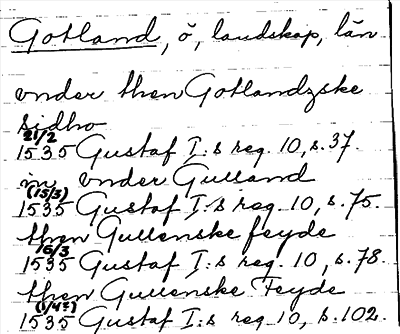 Gotland, ö, landskap, län
vnder then Gotlandzske
sidho
21/2
1535 Gustaf I:s reg. 10, s. 37.
in vnder Gulland
(15/3)
1535 Gustaf I:s reg. 10, s. 75.
then Gullenske feyde
16/3
1535 Gustaf I:s reg. 10, s. 78.
then Gullenske Feyde
1535 Gustaf I:s reg 10, s. 102.